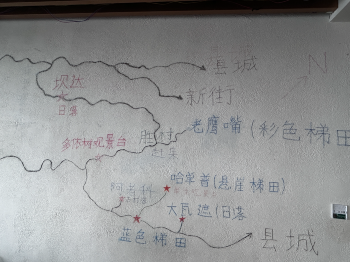 县城
N
坝达
日落
新街
老鹰嘴(彩色梯田
多依树观景台
胜村
赶集
哈单普(悬崖梯田)
阿者科
大瓦遮(日落
蓝色梯田
县城